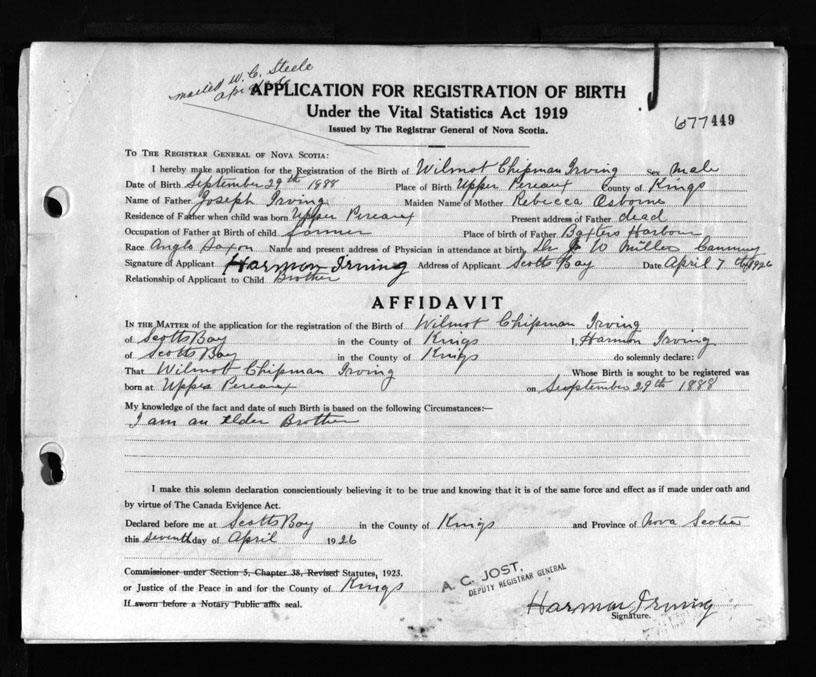 mailed W. C. Steele
APPLICATION FOR REGISTRATION OF BIRTH
Under the Vital Statistics Act 1919
Issued by The Registrar General of Nova Scotia.
677449
TO THE REGISTRAR GENERAL OF NOVA SCOTIA:
I hereby make application for the Registration of the Birth of Wilmot Chipman Irving Sex male
Date of Birth September 29th 1888 Place of Birth Upper Pereaux County of Kings
Name of Father Joseph Irving Maiden Name of Mother Rebecca Osborne
Residence of Father when child was born Upper Pereaux Present address of Father dead
Occupation of Father at Birth of child farmer Place of birth of Father Baxters Harbour
Race Anglo Saxon Name and present address of Physician in attendance at birth, Dr J W Miller Canning
Signature of Applicant Harmon Irving Address of Applicant Scotts Bay Date April 7 th 1926
Relationship of Applicant to Child Brother
AFFIDAVIT
IN THE MATTER of the application for the registration of the Birth of Wilmot Chipman Irving
of Scotts Bay in the County of Kings I, Harmon Irving
of Scotts Bay in the County of Kings do solemnly declare:
That Wilmot Chipman Irving Whose Birth is sought to be registered was
born at Upper Pereaux on Seoptember 29th 1888
My knowledge of the fact and date of such Birth is based on the following Circumstances:—
I am an elder Brother
I make this solemn declaration conscientiously believing it to be true and knowing that it is of the same force and effect as if made under oath and
by virtue of The Canada Evidence Act.
Declared before me at Scotts Bay in the County of Kings and Province of Nova Scotia
this seventh day of April 1926
Commissioner under Section 5, Chapter 38, Revised Statutes, 1923.
or Justice of the Peace in and for the County of Kings
A. C. JOST,
DEPUTY REGISTRAR GENERAL
If sworn before a Notary Public affix seal.
Harmon Irving
Signature.